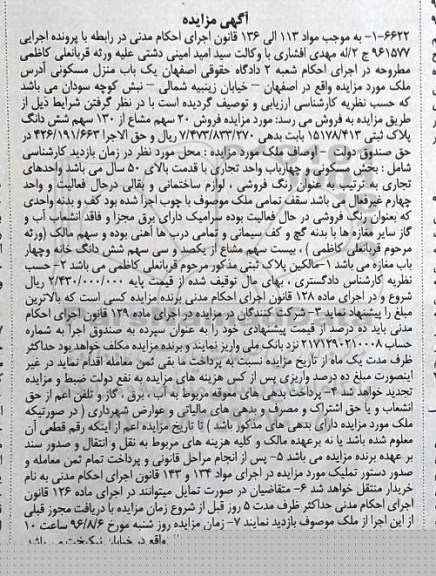 آگهی مزایده
۶۶۲۲-۱- به موجب مواد ۱۱۳ الی ۱۳۶ قانون اجرای احکام مدنی در رابطه با پرونده اجرایی
۹۶۱۵۷۷ ج ۲/له مهدی افشاری با وکالت سید امید امینی دشتی علیه ورثه قربانعلی کاظمی
مطروحه در اجرای احکام شعبه ۲ دادگاه حقوقی اصفهان یک باب منزل مسکونی آدرس
ملک مورد مزایده واقع در اصفهان – خیابان زینبیه شمالی – نبش کوچه سودان می باشد
که حسب نظریه کارشناسی ارزیابی و توصیف گردیده است با در نظر گرفتن شرایط ذیل از
طریق مزایده به فروش می رسد: مورد مزایده فروش ۲۰ سهم مشاع از ۱۳۰ سهم شش دانگ
پلاک ثبتی ۱۵۱۷۸/۴۱۳ بابت بدهی ۷/۴۷۳/۸۳۳/۲۷۰ ریال و حق الاجرا ۴۲۶/۱۹۱/۶۶۳ در
حق صندوق دولت – اوصاف ملک مورد مزایده : محل مورد نظر در زمان بازدید کارشناسی
شامل : بخش مسکونی و چهارباب واحد تجاری با قدمت بالای ۵۰ سال می باشد واحدهای
تجاری به ترتیب به عنوان رنگ فروشی ، لوازم ساختمانی و بقالی درحال فعالیت و واحد
چهارم غیرفعال می باشد سقف تمامی ملک موصوف با چوب اجرا شده بود کف و بدنه واحدی
که بعنوان رنگ فروشی در حال فعالیت بوده سرامیک دارای برق مجزا و فاقد انشعاب آب و
گاز سایر مغازه ها با بدنه گچ و کف سیمانی و تمامی درب ها آهنی بوده و سهم مالک (ورثه
مرحوم قربانعلی کاظمی ) ، بیست سهم مشاع از یکصد و سی سهم شش دانگ خانه وچهار
باب مغازه می باشد ۱-مالکین پلاک ثبتی مذکور مرحوم قربانعلی کاظمی می باشد ۲-حسب
نظریه کارشناس دادگستری ، بهای مال توقیف شده از قیمت پایه ۲/۴۳۰/۰۰۰/۰۰۰ ریال
شروع و در اجرای ماده ۱۲۸ قانون اجرای احکام مدنی برنده مزایده کسی است که بالاترین
مبلغ را پیشنهاد نماید ۳- شرکت کنندگان در مزایده در اجرای ماده ۱۲۹ قانون اجرای احکام
مدنی باید ده درصد از قیمت پیشنهادی خود را به عنوان سپرده به صندوق اجرا به شماره
حساب ۲۱۷۱۲۹۰۲۱۰۰۰۸ نزد بانک ملی واریز نمایند و برنده مزایده مکلف خواهد بود حداکثر
ظرف مدت یک ماه از تاریخ مزایده نسبت به پرداخت ما بقی ثمن معامله اقدام نماید در غیر
اینصورت مبلغ ده درصد واریزی پس از کسر هزینه های مزایده به نفع دولت ضبط و مزایده
تجدید خواهد شد ۴- پرداخت بدهی های معوقه مربوط به آب ، برق ، گاز و تلفن اعم از حق
انشعاب و یا حق اشتراک و مصرف و بدهی های مالیاتی و عوارض شهرداری ( در صورتیکه
ملک مورد مزایده دارای بدهی های مذکور باشد ) تا تاریخ مزایده اعم از اینکه رقم قطعی آن
معلوم شده باشد یا نه برعهده مالک و کلیه هزینه های مربوط به نقل و انتقال و صدور سند
بر عهده برنده مزایده می باشد ۵- پس از انجام مراحل قانونی و پرداخت تمام ثمن معامله و
صدور دستور تملیک مورد مزایده در اجرای مواد ۱۳۴ و ۱۴۳ قانون اجرای احکام مدنی به نام
خریدار منتقل خواهد شد ۶- متقاضیان در صورت تمایل میتوانند در اجرای ماده ۱۲۶ قانون
اجرای احکام مدنی حداکثر ظرف مدت ۵ روز قبل از شروع زمان مزایده با دریافت مجوز قبلی
از این اجرا از ملک موصوف بازدید نمایند ۷- زمان مزایده روز شنبه مورخ ۹۶/۸/۶ ساعت ۱۰
واقع در خیابان نیکبخت می باشد